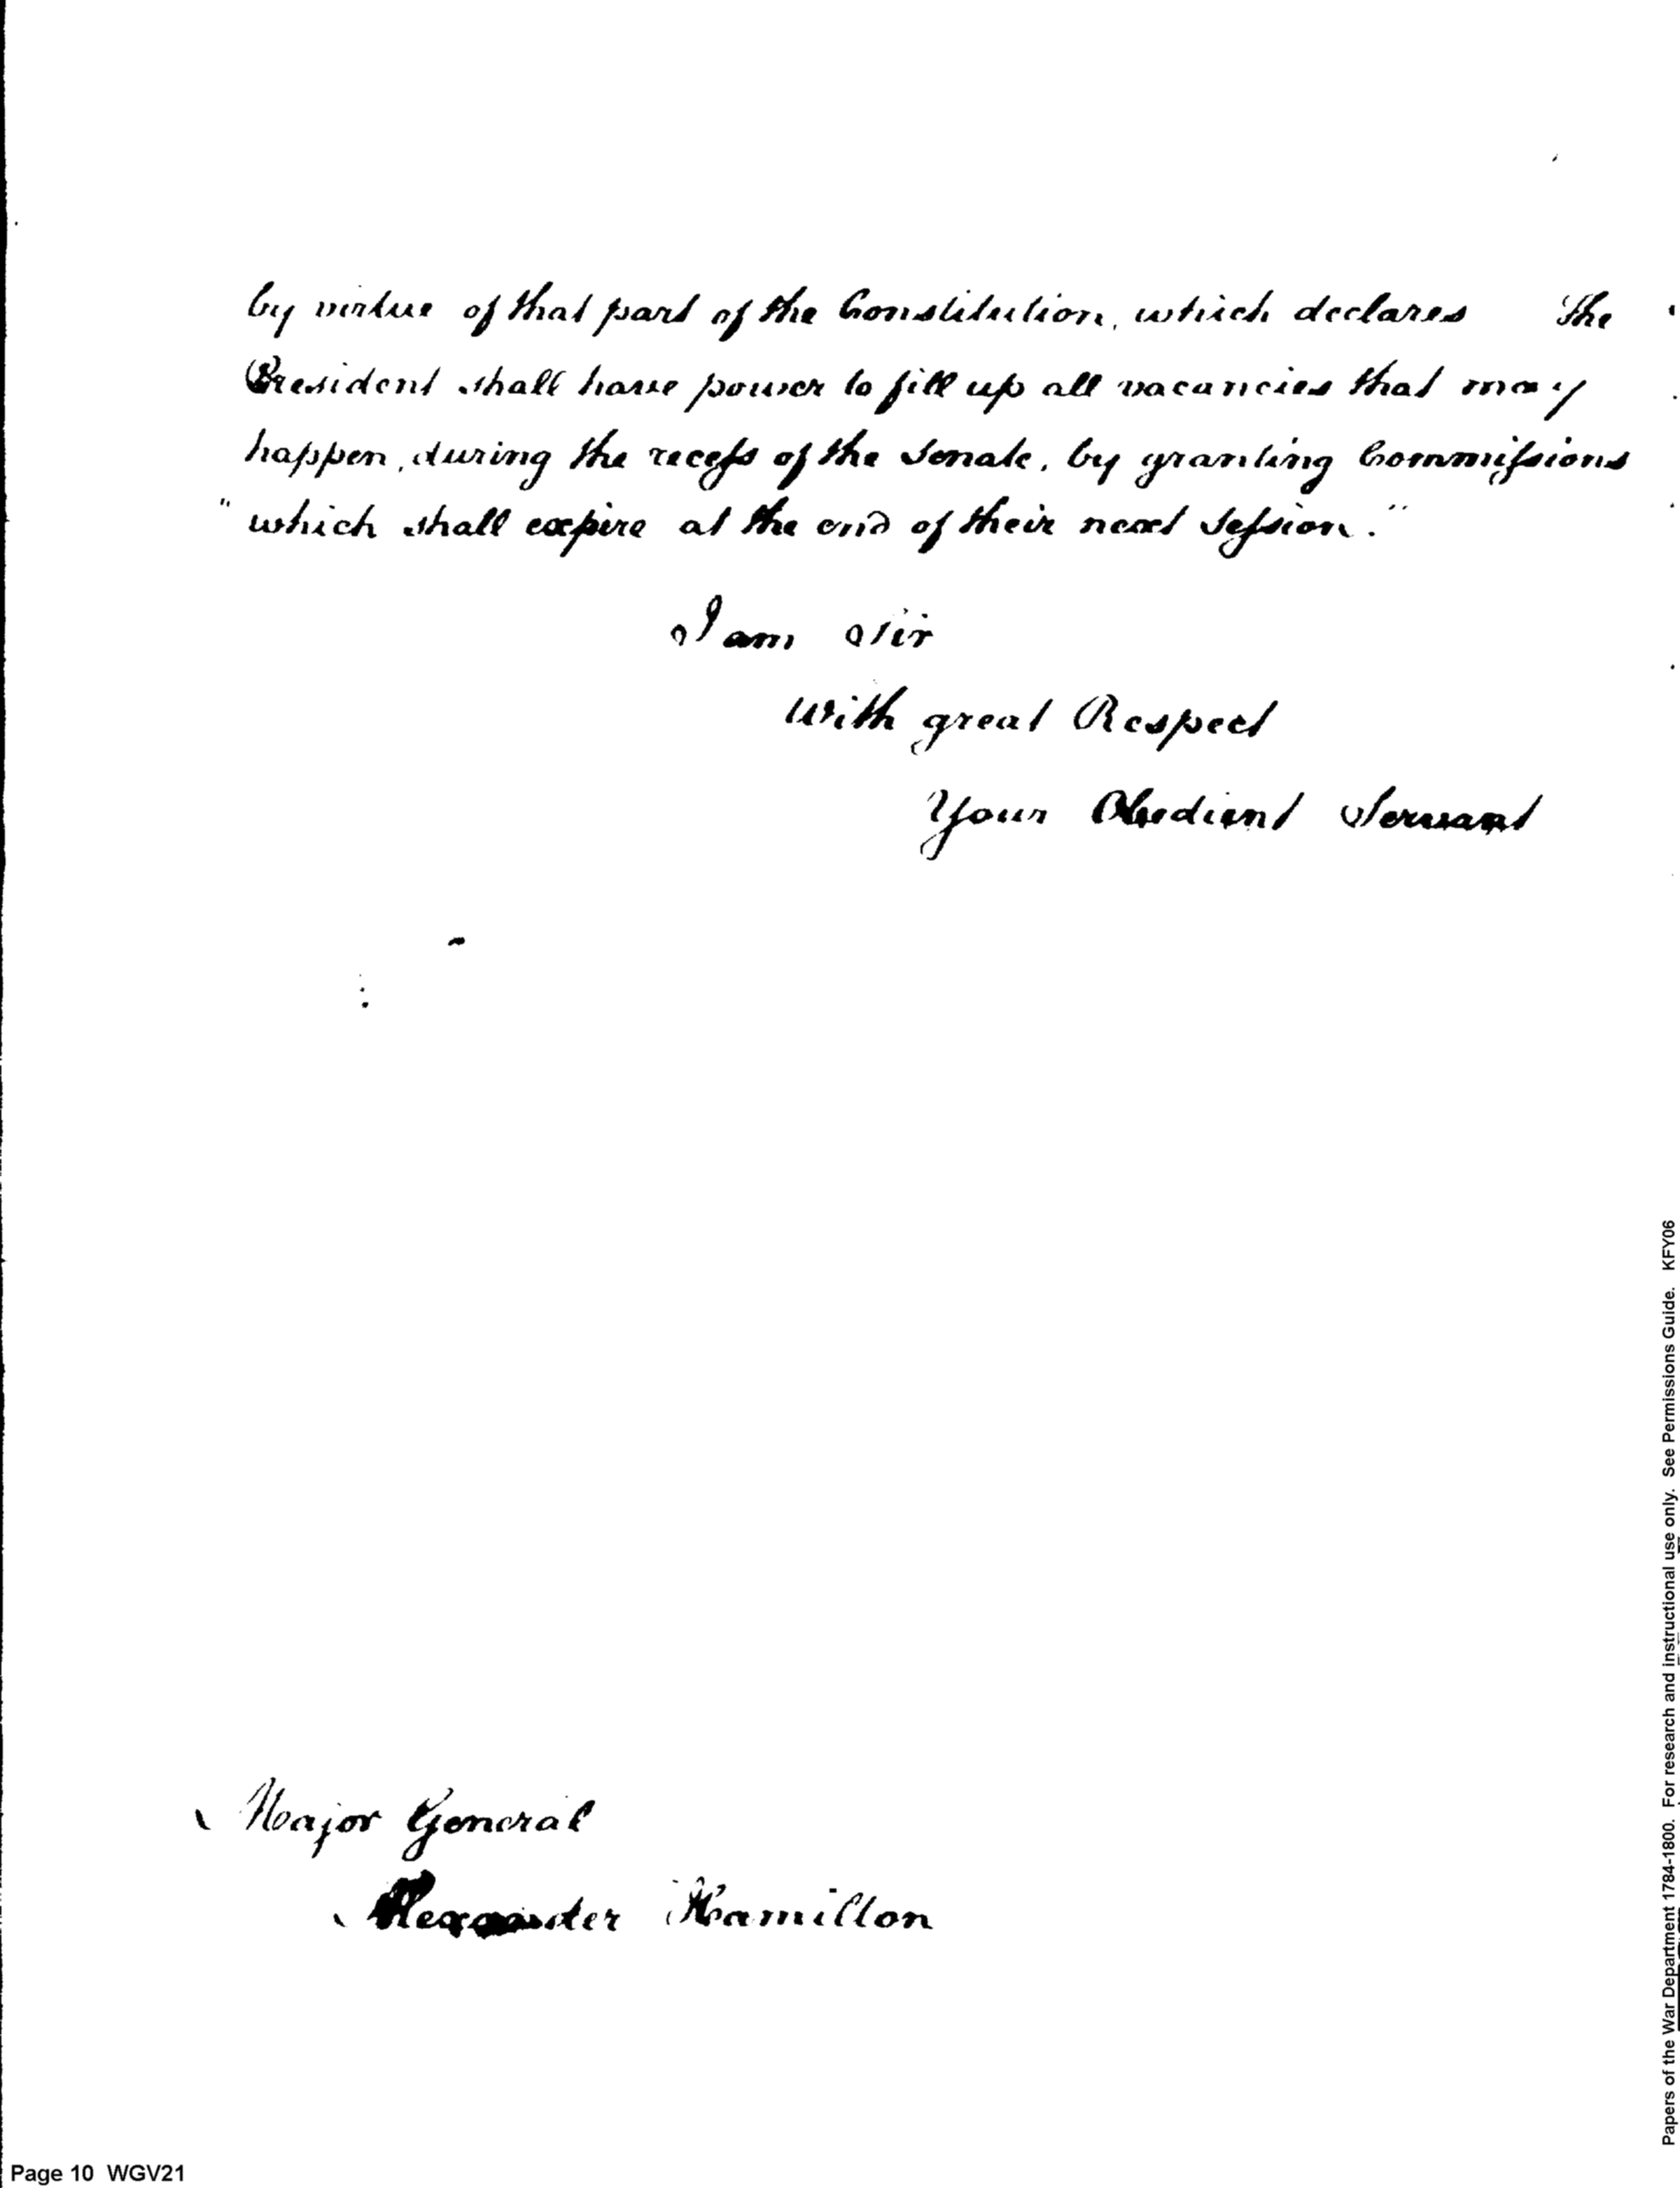 by virtue of that part of the Constitution, which declares The
President shall have power to fill up all vacancies that may
happen, during the recess of the Senate, by granting Commissions
" which shall expire at the end of their next Session."
I am Sir
With great Respect
Your Obedient Servant
Major General
Alexander Hamilton
Page 10 WGV21
Papers of the War Department 1784-1800. For research and instructional use only. See Permissions Guide. KFY06